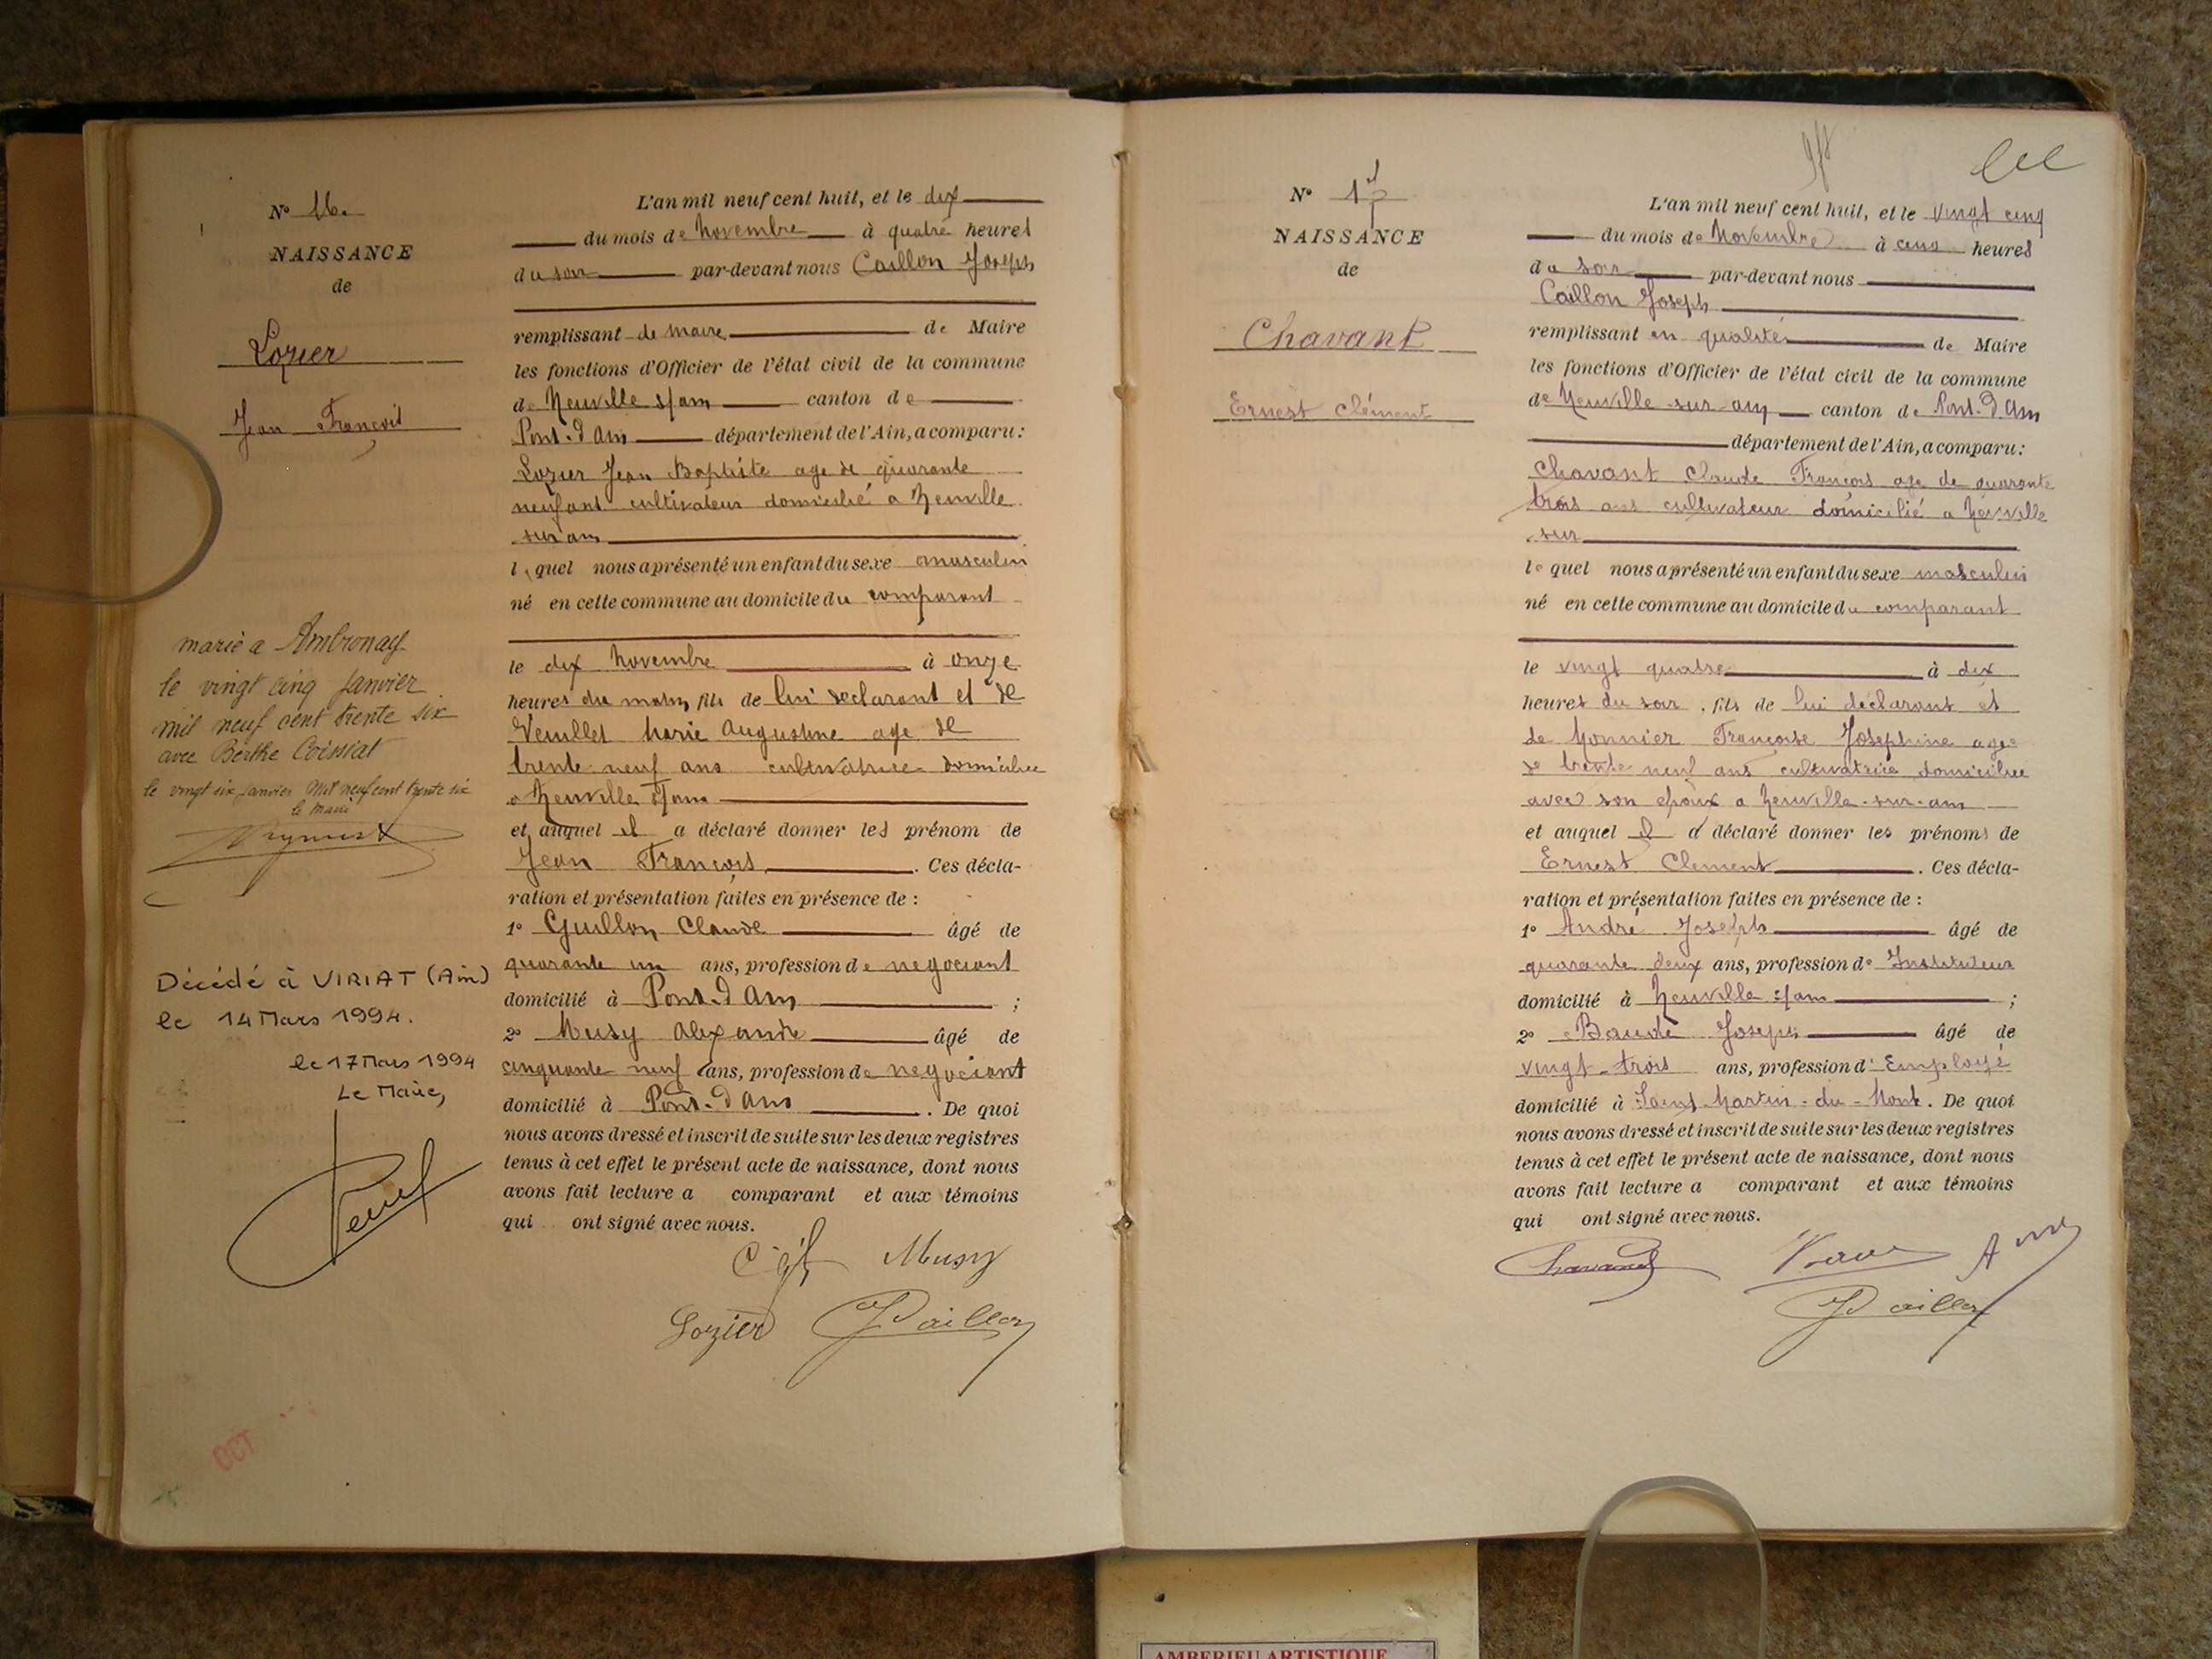 N° 16.
NAISSANCE
de
Lozier
Jean François
marié a Ambronay
le vingt cinq Janvier
mil neuf cent trente six
avec Berthe Coissiat
le vingt six Janvier Mil neuf cent trente six
le Maire
Décédé à VIRIAT (Ain)
le 14 Mars 1994.
le 17 Mars 1994
Le Maire,
OCT
L'an mil neuf cent huit, et le dix
du mois de Novembre à quatre heures
du soir par-devant nous Caillon Joseph
remplissant de maire de Maire
les fonctions d'Officier de l'état civil de la commune
de Neuville s/am canton de
Pont-d'Ain département de l'Ain, a comparu :
Lozier Jean Baptiste age de quarante
neuf ans cultivateur domicilié a Neuville
sur ain
lequel nous a présenté un enfant du sexe masculin
né en cette commune au domicile du comparant
le dix Novembre à onze
heures du matin, fils de lui declarant et de
Veuillet Marie Augustine age de
trente neuf ans cultivatrice domiciliee
a Neuville s/ain
et auquel il a déclaré donner les prénom de
Jean François. Ces décla-
ration et présentation faites en présence de :
1° Guillon Claude âgé de
quarante un ans, profession de negociant
domicilié à Pont-d'Ain ;
2° Musy Alexandre âgé de
cinquante neuf ans, profession de negociant
domicilié à Pont-d'Ain. De quoi
nous avons dressé et inscrit de suite sur les deux registres
tenus à cet effet le présent acte de naissance, dont nous
avons fait lecture a comparant et aux témoins
qui ont signé avec nous.
Musy
Lozier Caillon
N° 17
NAISSANCE
de
Chavant
Ernest Clément
L'an mil neuf cent huit, et le vingt cinq
du mois de Novembre à cinq heures
du soir par-devant nous
Caillon Joseph
remplissant en qualité de Maire
les fonctions d'Officier de l'état civil de la commune
de Neuville-sur-ain canton de Pont-d'Ain
département de l'Ain, a comparu :
Chavant Claude François age de quarante
trois ans cultivateur domicilié a Neuville
sur
lequel nous a présenté un enfant du sexe masculin
né en cette commune au domicile du comparant
le vingt quatre à dix
heures du soir, fils de lui déclarant et
de Monnier Françoise Joséphine agee
de trente neuf ans cultivatrice domiciliee
avec son époux a Neuville-sur-ain
et auquel il a déclaré donner les prénoms de
Ernest Clement. Ces décla-
ration et présentation faites en présence de :
1° André Joseph âgé de
quarante deux ans, profession de Instituteur
domicilié à Neuville s/ain ;
2° Baude Joseph âgé de
vingt-trois ans, profession d'Employé
domicilié à Saint-Martin-du-Mont. De quoi
nous avons dressé et inscrit de suite sur les deux registres
tenus à cet effet le présent acte de naissance, dont nous
avons fait lecture a comparant et aux témoins
qui ont signé avec nous.
Chavant
Caillon
AMBERIEU ARTISTIQUE